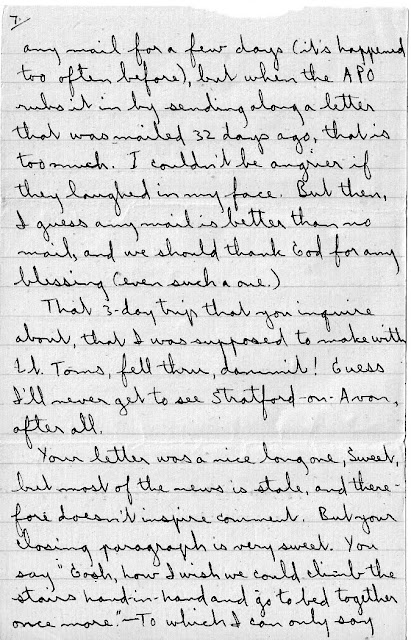 7.
any mail for a few days (it's happened
too often before), but when the APO
rubs it in by sending along a letter
that was mailed 32 days ago, that is
too much. I couldn't be angrier if
they laughed in my face. But then,
I guess any mail is better than no
mail, and we should thank God for any
blessing (even such a one.)
That 3-day trip that you inquire
about, that I was supposed to make with
Lt. Toms, fell thru, dammit! Guess
I'll never get to see Stratford-on-Avon,
after all.
Your letter was a nice long one, Sweet,
but most of the news is stale, and there-
fore doesn't inspire comment. But your
closing paragraph is very sweet. You
say "Gosh, how I wish we could climb the
stairs hand-in-hand and go to bed together
once more."—To which I can only say